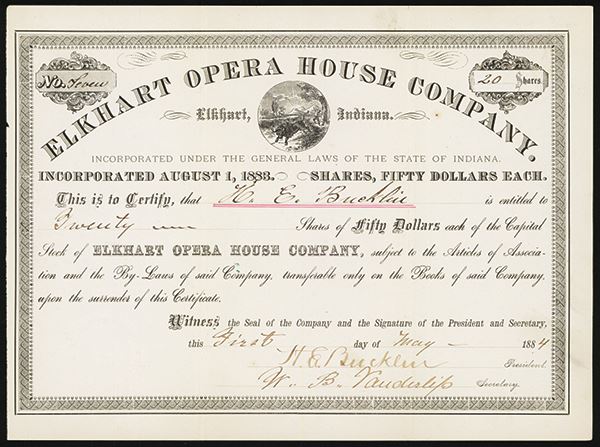 ELKHART OPERA HOUSE COMPANY.
No. Seven
20 Shares
Elkhart, Indiana.
INCORPORATED UNDER THE GENERAL LAWS OF THE STATE OF INDIANA.
INCORPORATED AUGUST 1, 1883. SHARES, FIFTY DOLLARS EACH.
This is to Certify, that H. E. Bucklin is entitled to
Twenty Shares of Fifty Dollars each of the Capital
Stock of ELKHART OPERA HOUSE COMPANY, subject to the Articles of Associa-
tion and the By-Laws of said Company, transferable only on the Books of said Company,
upon the surrender of this Certificate.
Witness the Seal of the Company and the Signature of the President and Secretary,
this First day of May 1884
H. E. Bucklin President.
W. B. Vanderlip Secretary.